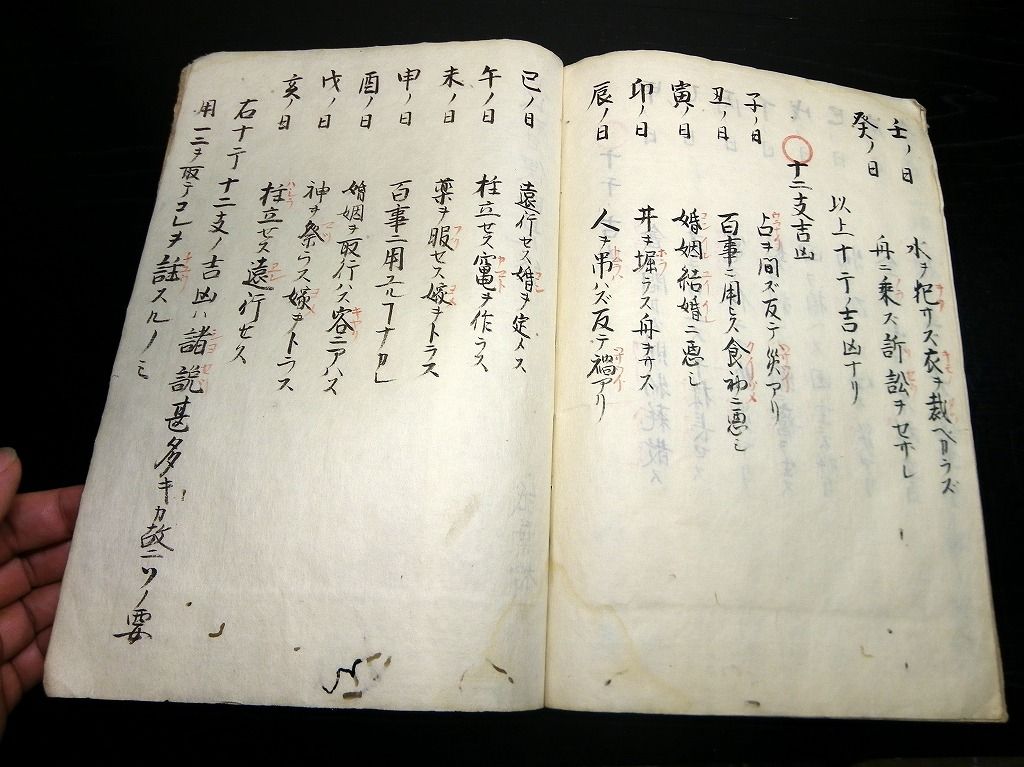 壬ノ日 水ヲ犯サズ衣ヲ裁ベカラズ
癸ノ日 舟ニ乗ズ訴訟ヲセザレ
以上十干ノ吉凶ナリ
十二支吉凶
子ノ日 占ヲ問ズ反テ災アリ
丑ノ日 百事ニ用ヒズ食初ニ悪シ
寅ノ日 婚姻結婚ニ悪シ
卯ノ日 井ヲ堀ラズ舟ヲ
辰ノ日 人ヲ弔ハズ反テ禍アリ
巳ノ日 遠行セズ婚ヲ定メズ
午ノ日 柱立セズ竃ヲ作ラス
未ノ日 薬ヲ服セズ嫁ヲトラス
申ノ日 百事ニ用ユルヿナカレ
酉ノ日 婚姻ヲ取行ハズ客ニアハズ
戌ノ日 神ヲ祭ラズ嫁ヲトラス
亥ノ日 柱立セズ遠行セス
右十干十二支ノ吉凶ハ諸説甚多キカ故ニソノ要
用一二ヲ取テコレヲ註スルノミ